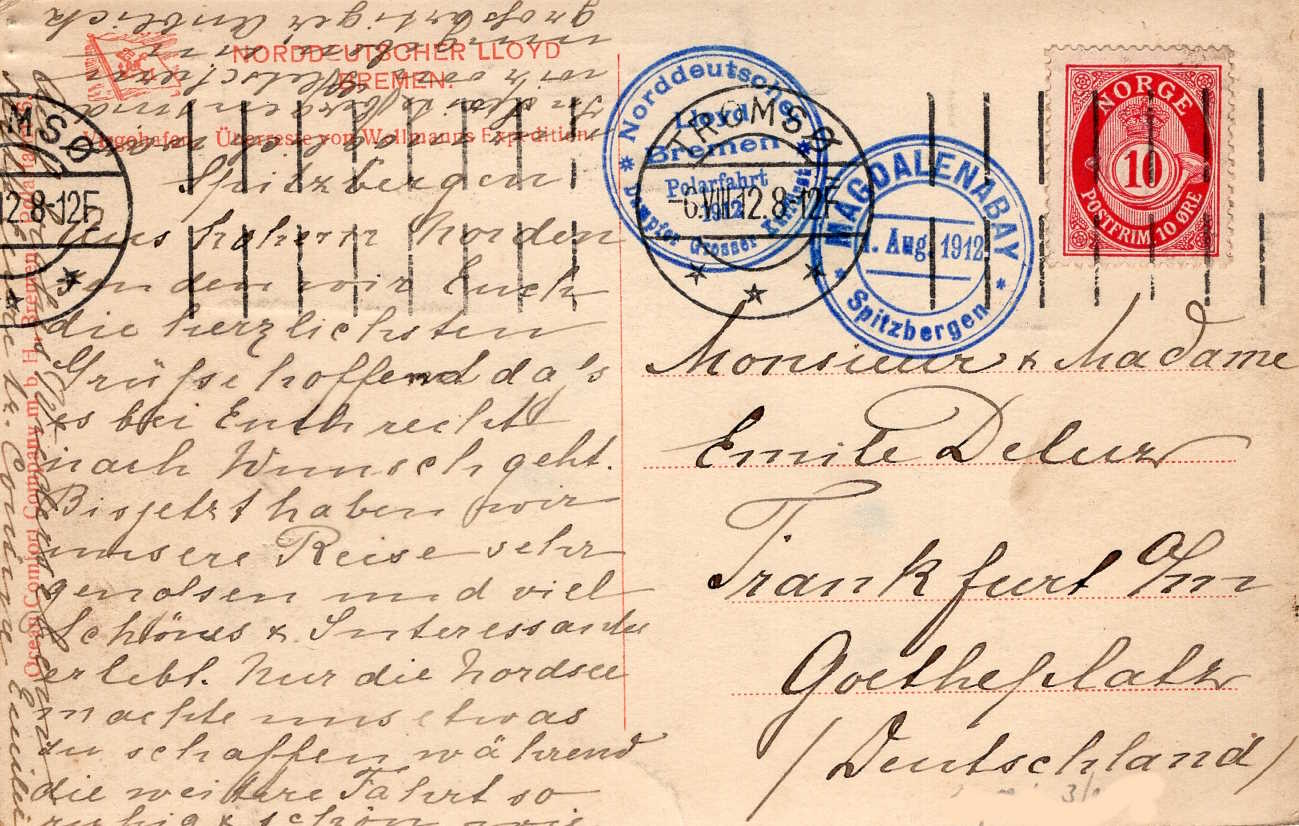 NORDDEUTSCHER LLOYD
BREMEN.
Virgohafen. Überreste von Wellmanns Expedition
Spitzbergen
Aus hohem Norden
senden wir Euch
die herzlichsten
Grüße hoffend da's
es bei Euch recht
nach Wunsch geht.
Bisjetzt haben wir
unsere Reise sehr
genossen und viel
Schönes & Interessantes
erlebt. Nur die Nordsee
machte uns etwas
zu schaffen während
die weitere Fahrt so
ruhig & schön wie
großartiger Anblick
Ocean Comfort Company m. b. H., Bremen
Norddeutscher
Lloyd
Bremen
Polarfahrt
1912
Dampfer Grosser Kurfürst
TROMSØ
-6.VIII.12.8-12F
MSØ
12.8-12F
MAGDALENABAY
1. Aug. 1912
Spitzbergen
NORGE
10
POSTFRIM. 10 ØRE
Monsieur & Madame
Emile Deluz
Frankfurt a/m
Goetheplatz
(Deutschland)